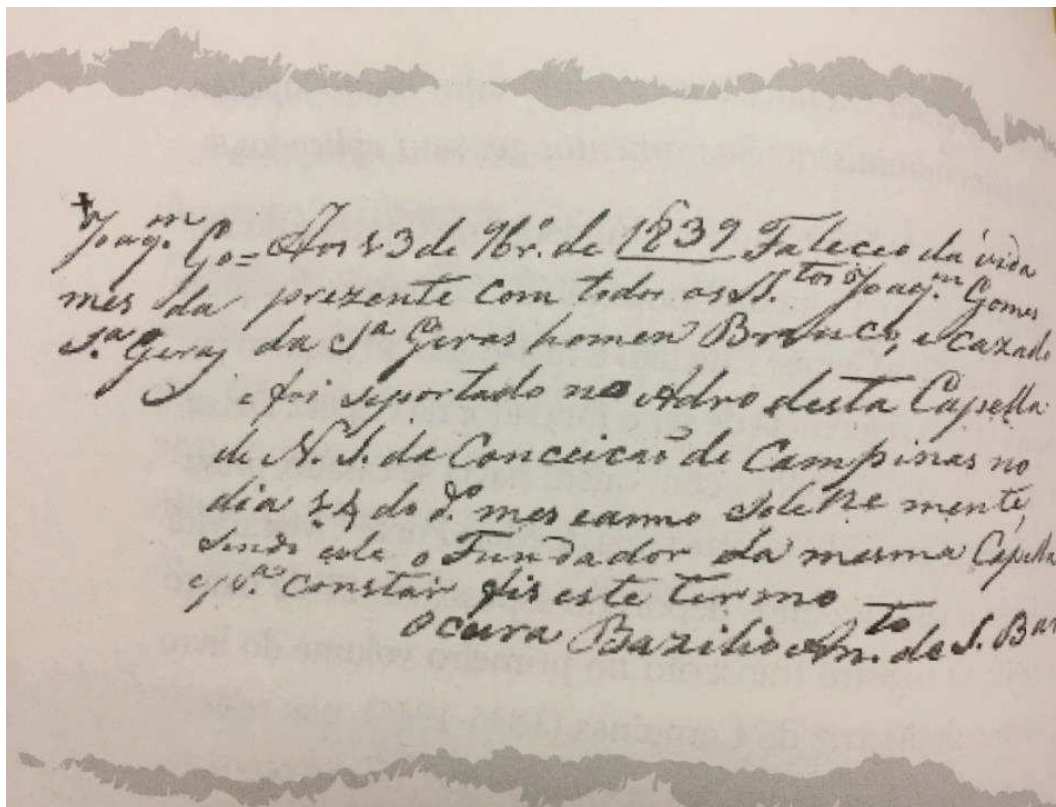 Joaqm. Go= Aos 23 de 9br.º de 1839 Faleceo da vida
mes da prezente com todos os S.tos Joaqm. Gomes
S.ª Geraj da S.ª Geras homen Branco, e cazado
e foi seportado no Adro desta Capella
de N. S. da Conceicaõ de Campinas no
dia 24 do d.º mes e anno solenemente,
sendo este o Fundador da mesma Capella
e p.ª constar fis este termo
O cura Bazilio An.to de S. Bar